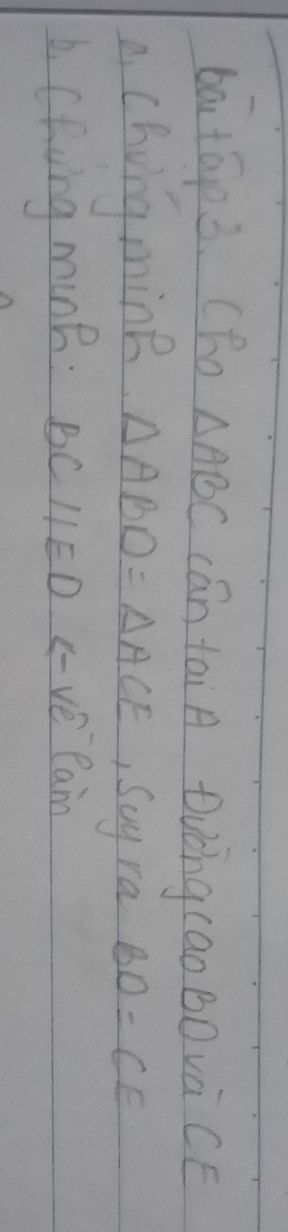 bài tập 3. Cho ΔABC cân tại A Đường cao BD và CE
a, Chứng minh. ΔABD = ΔACE, suy ra BD = CE
b, Chứng minh: BC // ED ← về làm